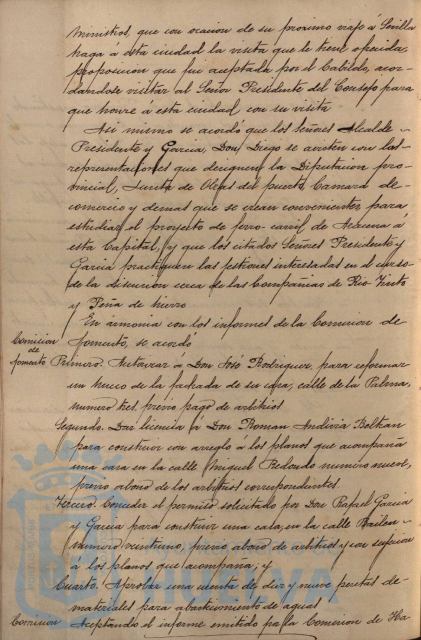 Ministros, que con ocasion de su proximo viaje a Sevilla
haga á esta ciudad la visita que le tiene ofrecida,
proposicion que fue aceptada por el Cabildo, acor-
dandose visitar al Señor Presidente del Consejo para
que honre á esta ciudad con su visita
Asi mismo se acordó que los Señores Alcalde
Presidente y Garcia, Don Diego se avisten con las
representaciones que designen la Diputacion pro-
vincial, Junta de Obras del puerto, Camara de
comercio y demas que se crean convenientes para
estudiar el proyecto de ferro-carril de Aracena á
esta Capital, y que los citados Señores Presidente y
Garcia practiquen las gestiones interesadas en el curso
de la discusion cerca de las Compañias de Rio Tinto
y Peña de hierro
En armonia con los informes de la Comision de
fomento, se acordó
Comision
de
fomento
Primero. Autorizar á Don José Rodriguez, para reformar
un hueco de la fachada de su casa, calle de la Palma,
numero tres, previo pago de arbitrios
Segundo. Dar licencia á Don Roman Andivia Beltran
para construir con arreglo á los planos que acompaña
una casa en la calle Miguel Redondo numero nueve,
previo abono de los arbitrios correspondientes.
Tercero. Conceder el permiso solicitado por Don Rafael Garcia
y Garcia para construir una casa, en la calle Bailen
numero veintiuno, previo abono de arbitrios y con sujecion
á los planos que acompaña; y
Cuarto. Aprobar una cuenta de diez y nueve pesetas de
materiales para abastecimiento de aguas
Comision
Aceptando el informe emitido por la Comision de Ha-